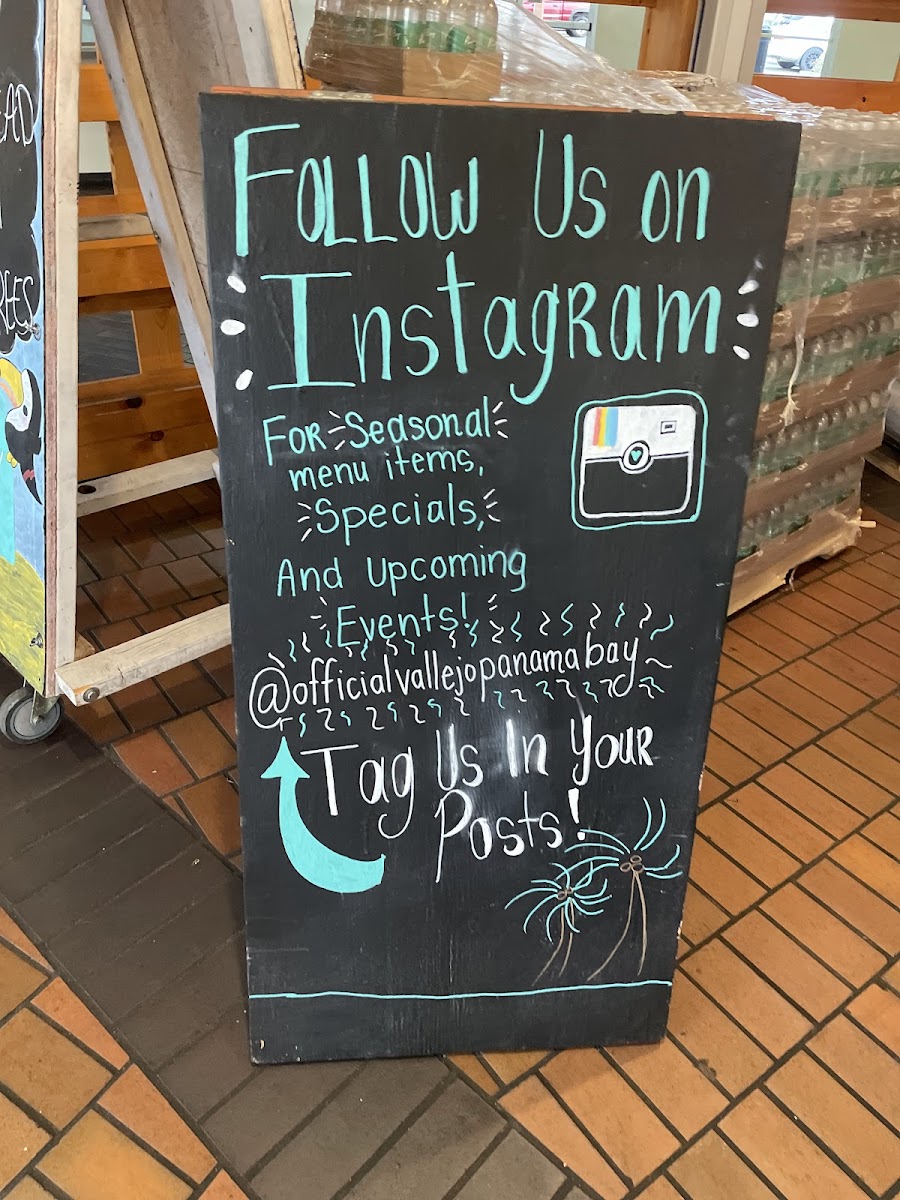 Follow Us on
Instagram
For Seasonal
menu items,
Specials,
And upcoming
Events!
@officialvallejopanamabay
Tag Us In Your
Posts!